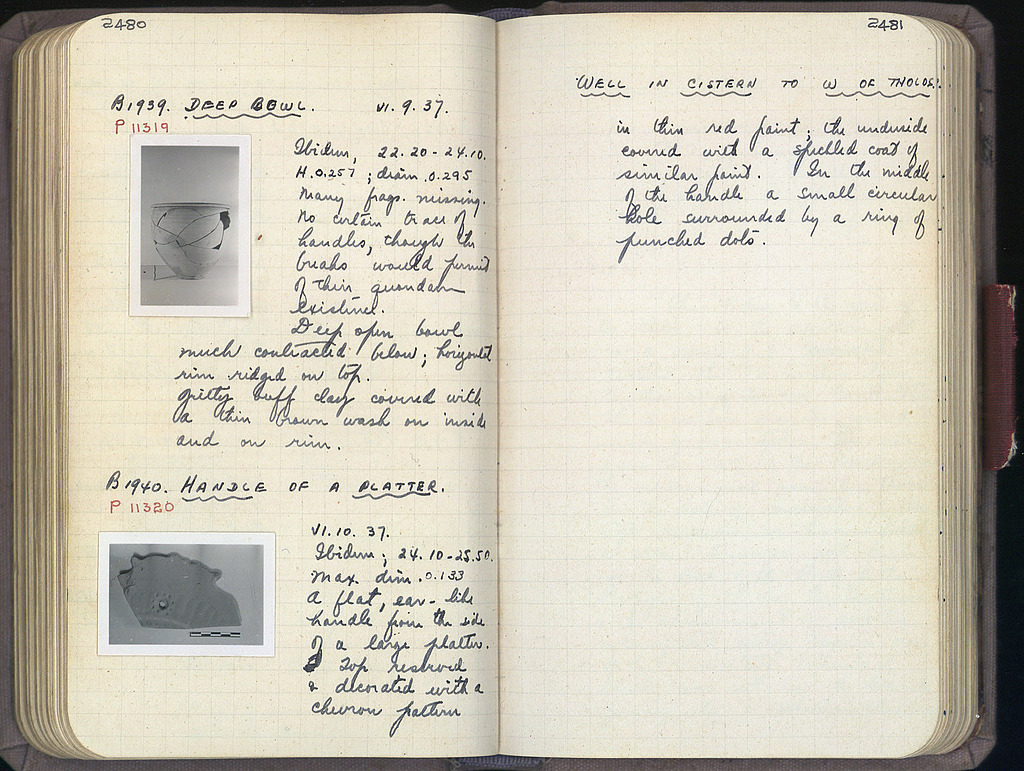 2480
B1939. DEEP BOWL. VI. 9. 37.
P 11319
Ibidem, 22.20-24.10.
H. 0.257; diam. 0.295
Many frags. missing.
No certain trace of
handles, though the
breaks would permit
of their quondam
existence.
Deep open bowl
much contracted below; horizontal
rim ridged on top.
Gritty buff clay covered with
a thin brown wash on inside
and on rim.
B1940. HANDLE OF A PLATTER.
P 11320
VI. 10. 37.
Ibidem; 24.10-25.50.
Max. dim. 0.133
A flat, ear-like
handle from the side
of a large platter.
Top reserved
& decorated with a
chevron pattern
2481
WELL IN CISTERN TO W OF THOLOS.
in thin red paint; the underside
covered with a speckled coat of
similar paint. In the middle
of the handle a small circular
hole surrounded by a ring of
punched dots.